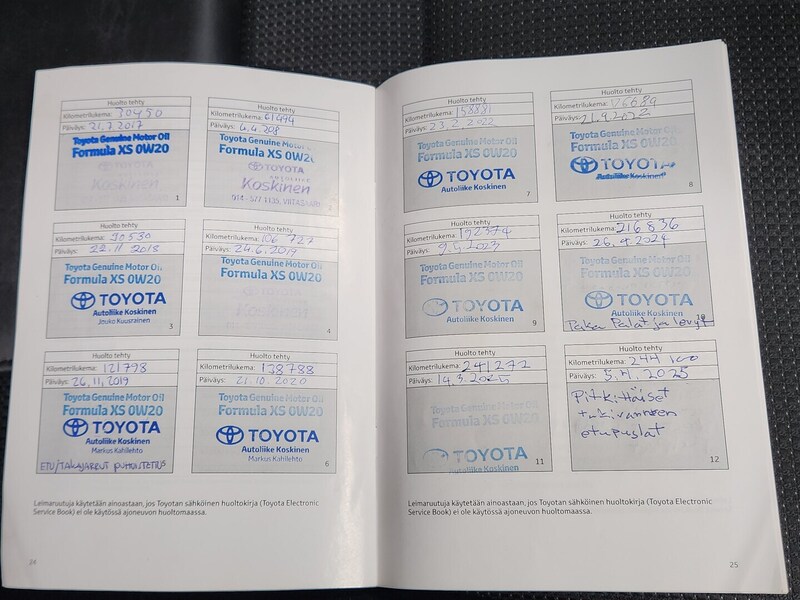 Huolto tehty
Kilometrilukema: 30450
Päiväys: 21.7.2017
Toyota Genuine Motor Oil
Formula XS 0W20
Koskinen
1
Huolto tehty
Kilometrilukema: 61944
Päiväys: 6.4.2018
Toyota Genuine Motor Oil
Formula XS 0W20
TOYOTA
Koskinen
2
Huolto tehty
Kilometrilukema: 90530
Päiväys: 22.11 2018
Toyota Genuine Motor Oil
Formula XS 0W20
TOYOTA
Autoliike Koskinen
Jouko Kuusrainen
3
Huolto tehty
Kilometrilukema: 106 727
Päiväys: 24.6.2019
Toyota Genuine Motor Oil
Formula XS 0W20
Koskinen
4
Huolto tehty
Kilometrilukema: 121798
Päiväys: 26.11.2019
Toyota Genuine Motor Oil
Formula XS 0W20
TOYOTA
Autoliike Koskinen
Markus Kahilehto
ETU/TAKAJARRUT PUHDISTETTUS
Huolto tehty
Kilometrilukema: 138788
Päiväys: 21.10.2020
Toyota Genuine Motor Oil
Formula XS 0W20
TOYOTA
Autoliike Koskinen
Markus Kahilehto
6
Leimaruutuja käytetään ainoastaan, jos Toyotan sähköinen huoltokirja (Toyota Electronic
Service Book) ei ole käytössä ajoneuvon huoltomaassa.
24
Huolto tehty
Kilometrilukema: 158881
Päiväys: 23.2.2022
Toyota Genuine Motor Oil
Formula XS 0W20
TOYOTA
Autoliike Koskinen
7
Huolto tehty
Kilometrilukema: 176689
Päiväys: 21.9.2022
Toyota Genuine Motor Oil
Formula XS 0W20
TOYOTA
Autoliike Koskinen
8
Huolto tehty
Kilometrilukema: 192374
Päiväys: 9.9.2023
Toyota Genuine Motor Oil
Formula XS 0W20
TOYOTA
Autoliike Koskinen
9
Huolto tehty
Kilometrilukema: 216 836
Päiväys: 26.4.2024
Toyota Genuine Motor Oil
Formula XS 0W20
TOYOTA
Autoliike Koskinen
10
Taka Palat ja levyt
Huolto tehty
Kilometrilukema: 241272
Päiväys: 14.3.2025
Toyota Genuine Motor Oil
Formula XS 0W20
TOYOTA
11
Huolto tehty
Kilometrilukema: 244 100
Päiväys: 5.4.2025
Pitkittäiset
tukivarren
etupuslat
12
Leimaruutuja käytetään ainoastaan, jos Toyotan sähköinen huoltokirja (Toyota Electronic
Service Book) ei ole käytössä ajoneuvon huoltomaassa.
25